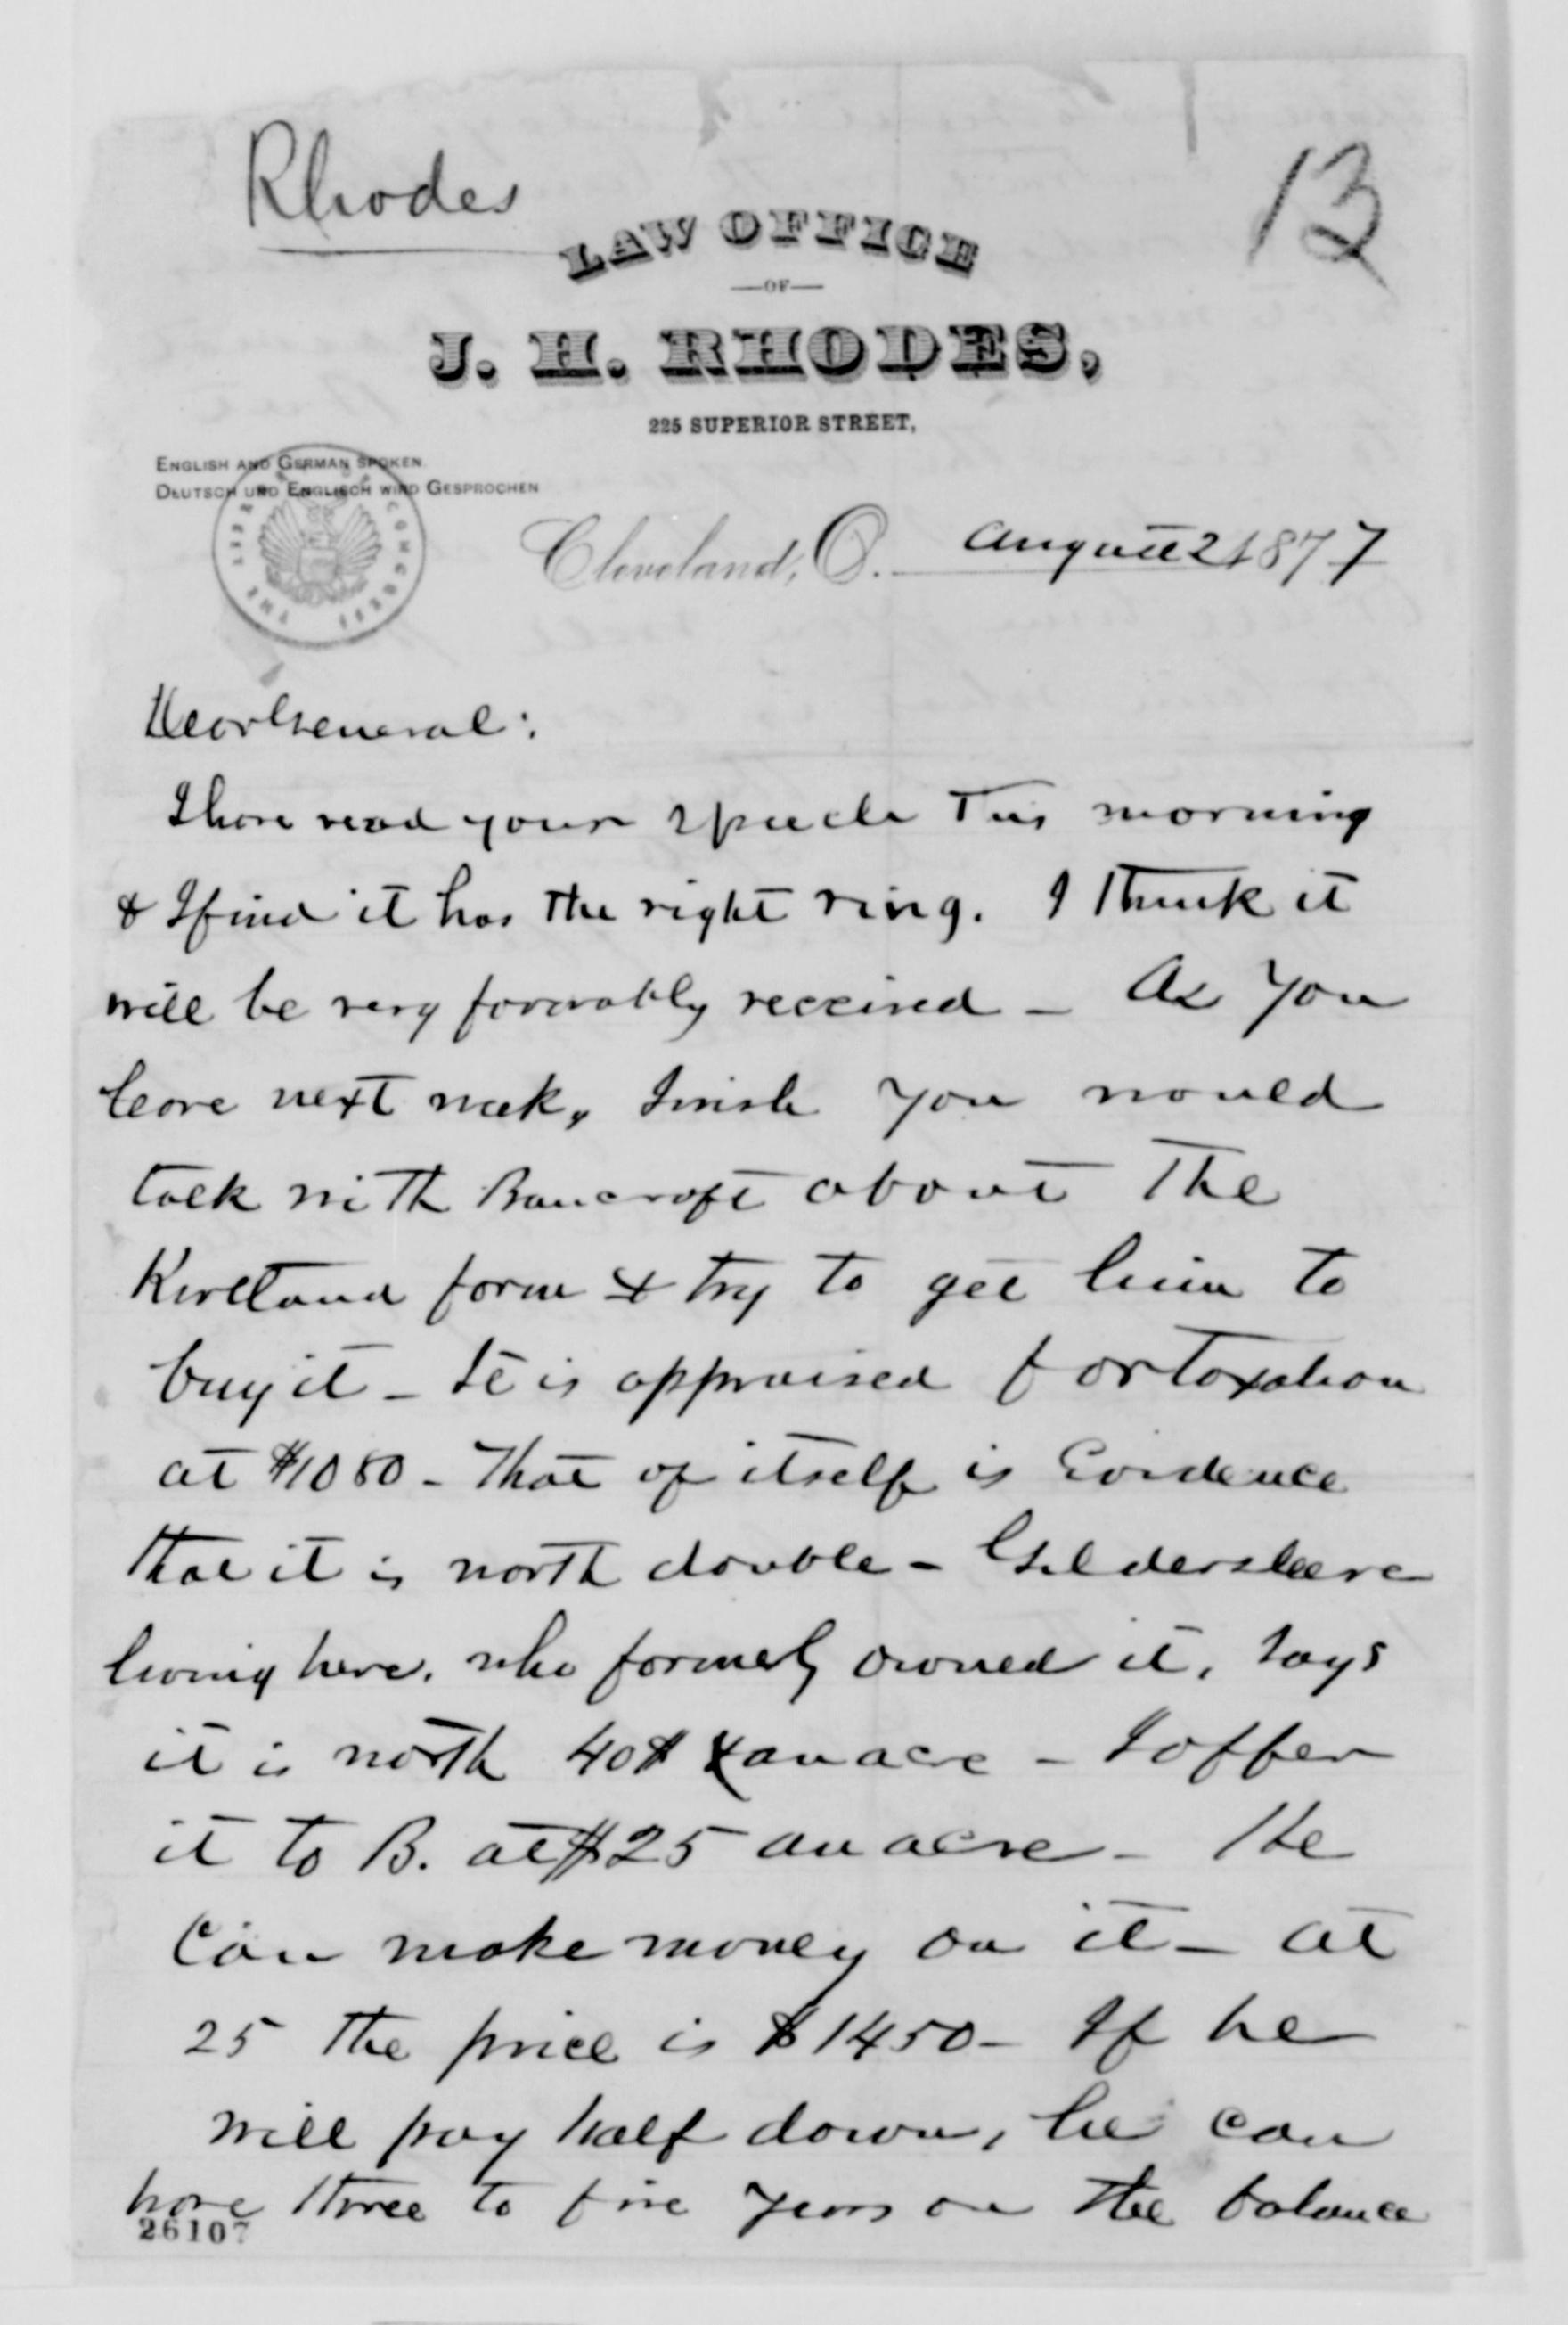 Rhodes
13
LAW OFFICE
—OF—
J. H. RHODES,
225 SUPERIOR STREET,
ENGLISH AND GERMAN SPOKEN.
DEUTSCH UND ENGLISCH WIRD GESPROCHEN
THE LIBRARY CONGRESS
Cleveland, O. August 2 1877
Dear General:
I have read your speech this morning
& I find it has the right ring. I think it
will be very favorably received – As you
leave next week, I wish you would
talk with Bancroft about the
Kirtland farm & try to get him to
buy it – It is appraised for taxation
at $1080 – That of itself is Evidence
that it is worth double – Gildersleeve
living here, who formerly owned it, says
it is worth 40$ an acre – I offer
it to B. at $25 an acre – He
Can make money on it – at
25 the price is $1450 – If he
will pay half down, he can
have three to five years on the balance
26107